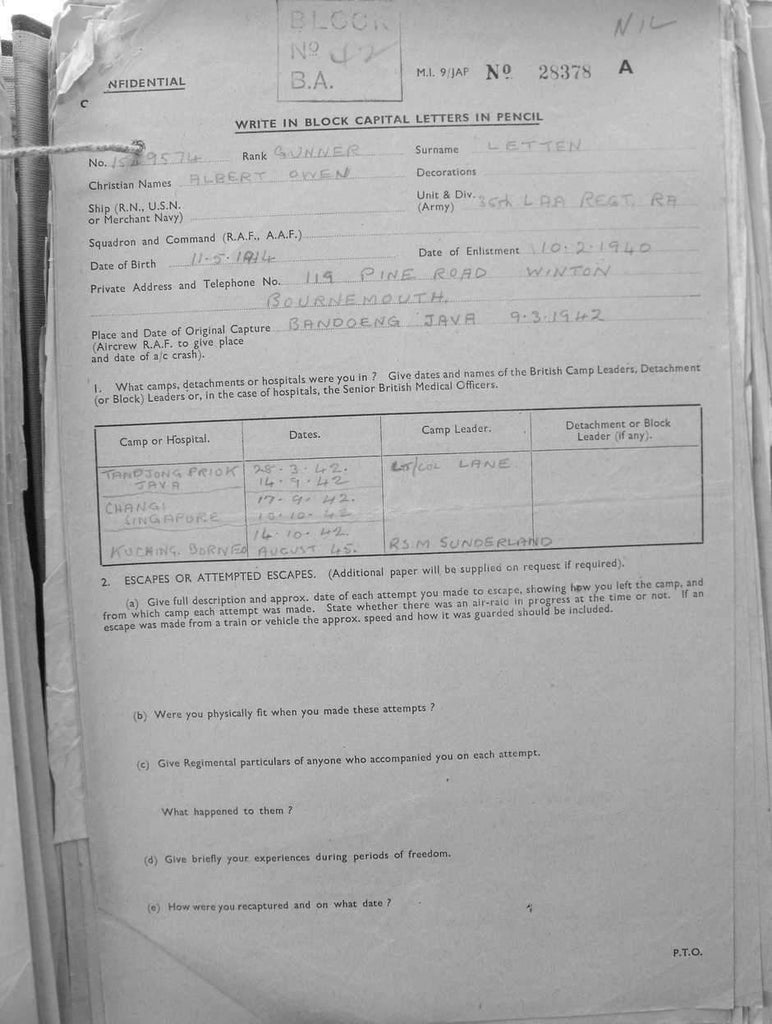 BLOCK
Nº 42
B.A.
NIL
NFIDENTIAL
C
M.I. 9/JAP Nº 28378 A
WRITE IN BLOCK CAPITAL LETTERS IN PENCIL
No. Rank GUNNER Surname LETTEN
Christian Names ALBERT OWEN Decorations
Ship (R.N., U.S.N. or Merchant Navy) Unit & Div. (Army) 35th LAA REGT. RA
Squadron and Command (R.A.F., A.A.F.)
Date of Birth 11-5-1914 Date of Enlistment 10-2-1940
Private Address and Telephone No. 119 PINE ROAD WINTON
BOURNEMOUTH.
Place and Date of Original Capture BANDOENG JAVA 9-3-1942
(Aircrew R.A.F. to give place
and date of a/c crash).
1. What camps, detachments or hospitals were you in ? Give dates and names of the British Camp Leaders, Detachment
(or Block) Leaders or, in the case of hospitals, the Senior British Medical Officers.
Camp or Hospital. Dates. Camp Leader. Detachment or Block Leader (if any).
TANDJONG PRIOK 28-3-42. LT/COL LANE
JAVA 14-9-42
CHANGI 17-9-42.
SINGAPORE 10-10-42
14-10-42.
KUCHING. BORNEO AUGUST 45. RSM SUNDERLAND
2. ESCAPES OR ATTEMPTED ESCAPES. (Additional paper will be supplied on request if required).
(a) Give full description and approx. date of each attempt you made to escape, showing how you left the camp, and
from which camp each attempt was made. State whether there was an air-raid in progress at the time or not. If an
escape was made from a train or vehicle the approx. speed and how it was guarded should be included.
(b) Were you physically fit when you made these attempts ?
(c) Give Regimental particulars of anyone who accompanied you on each attempt.
What happened to them ?
(d) Give briefly your experiences during periods of freedom.
(e) How were you recaptured and on what date ?
P.T.O.